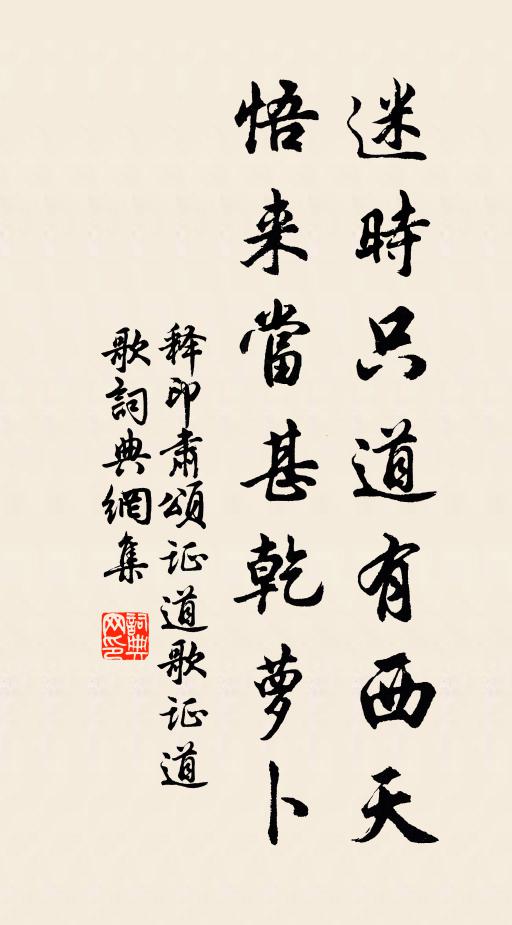 迷時只道有西天
悟来當甚乾萝卜
释印肃頌证道歌证道
歌詞典網集
詞典
网印